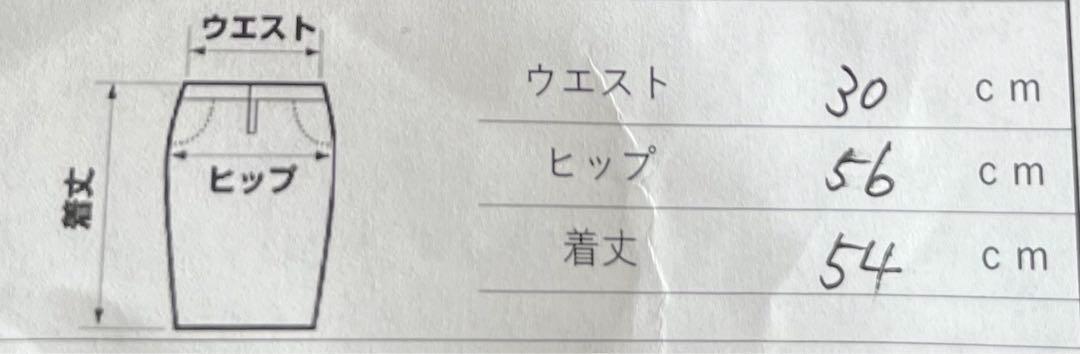 ウエスト
ヒップ
着丈
ウエスト 30 cm
ヒップ 56 cm
着丈 54 cm